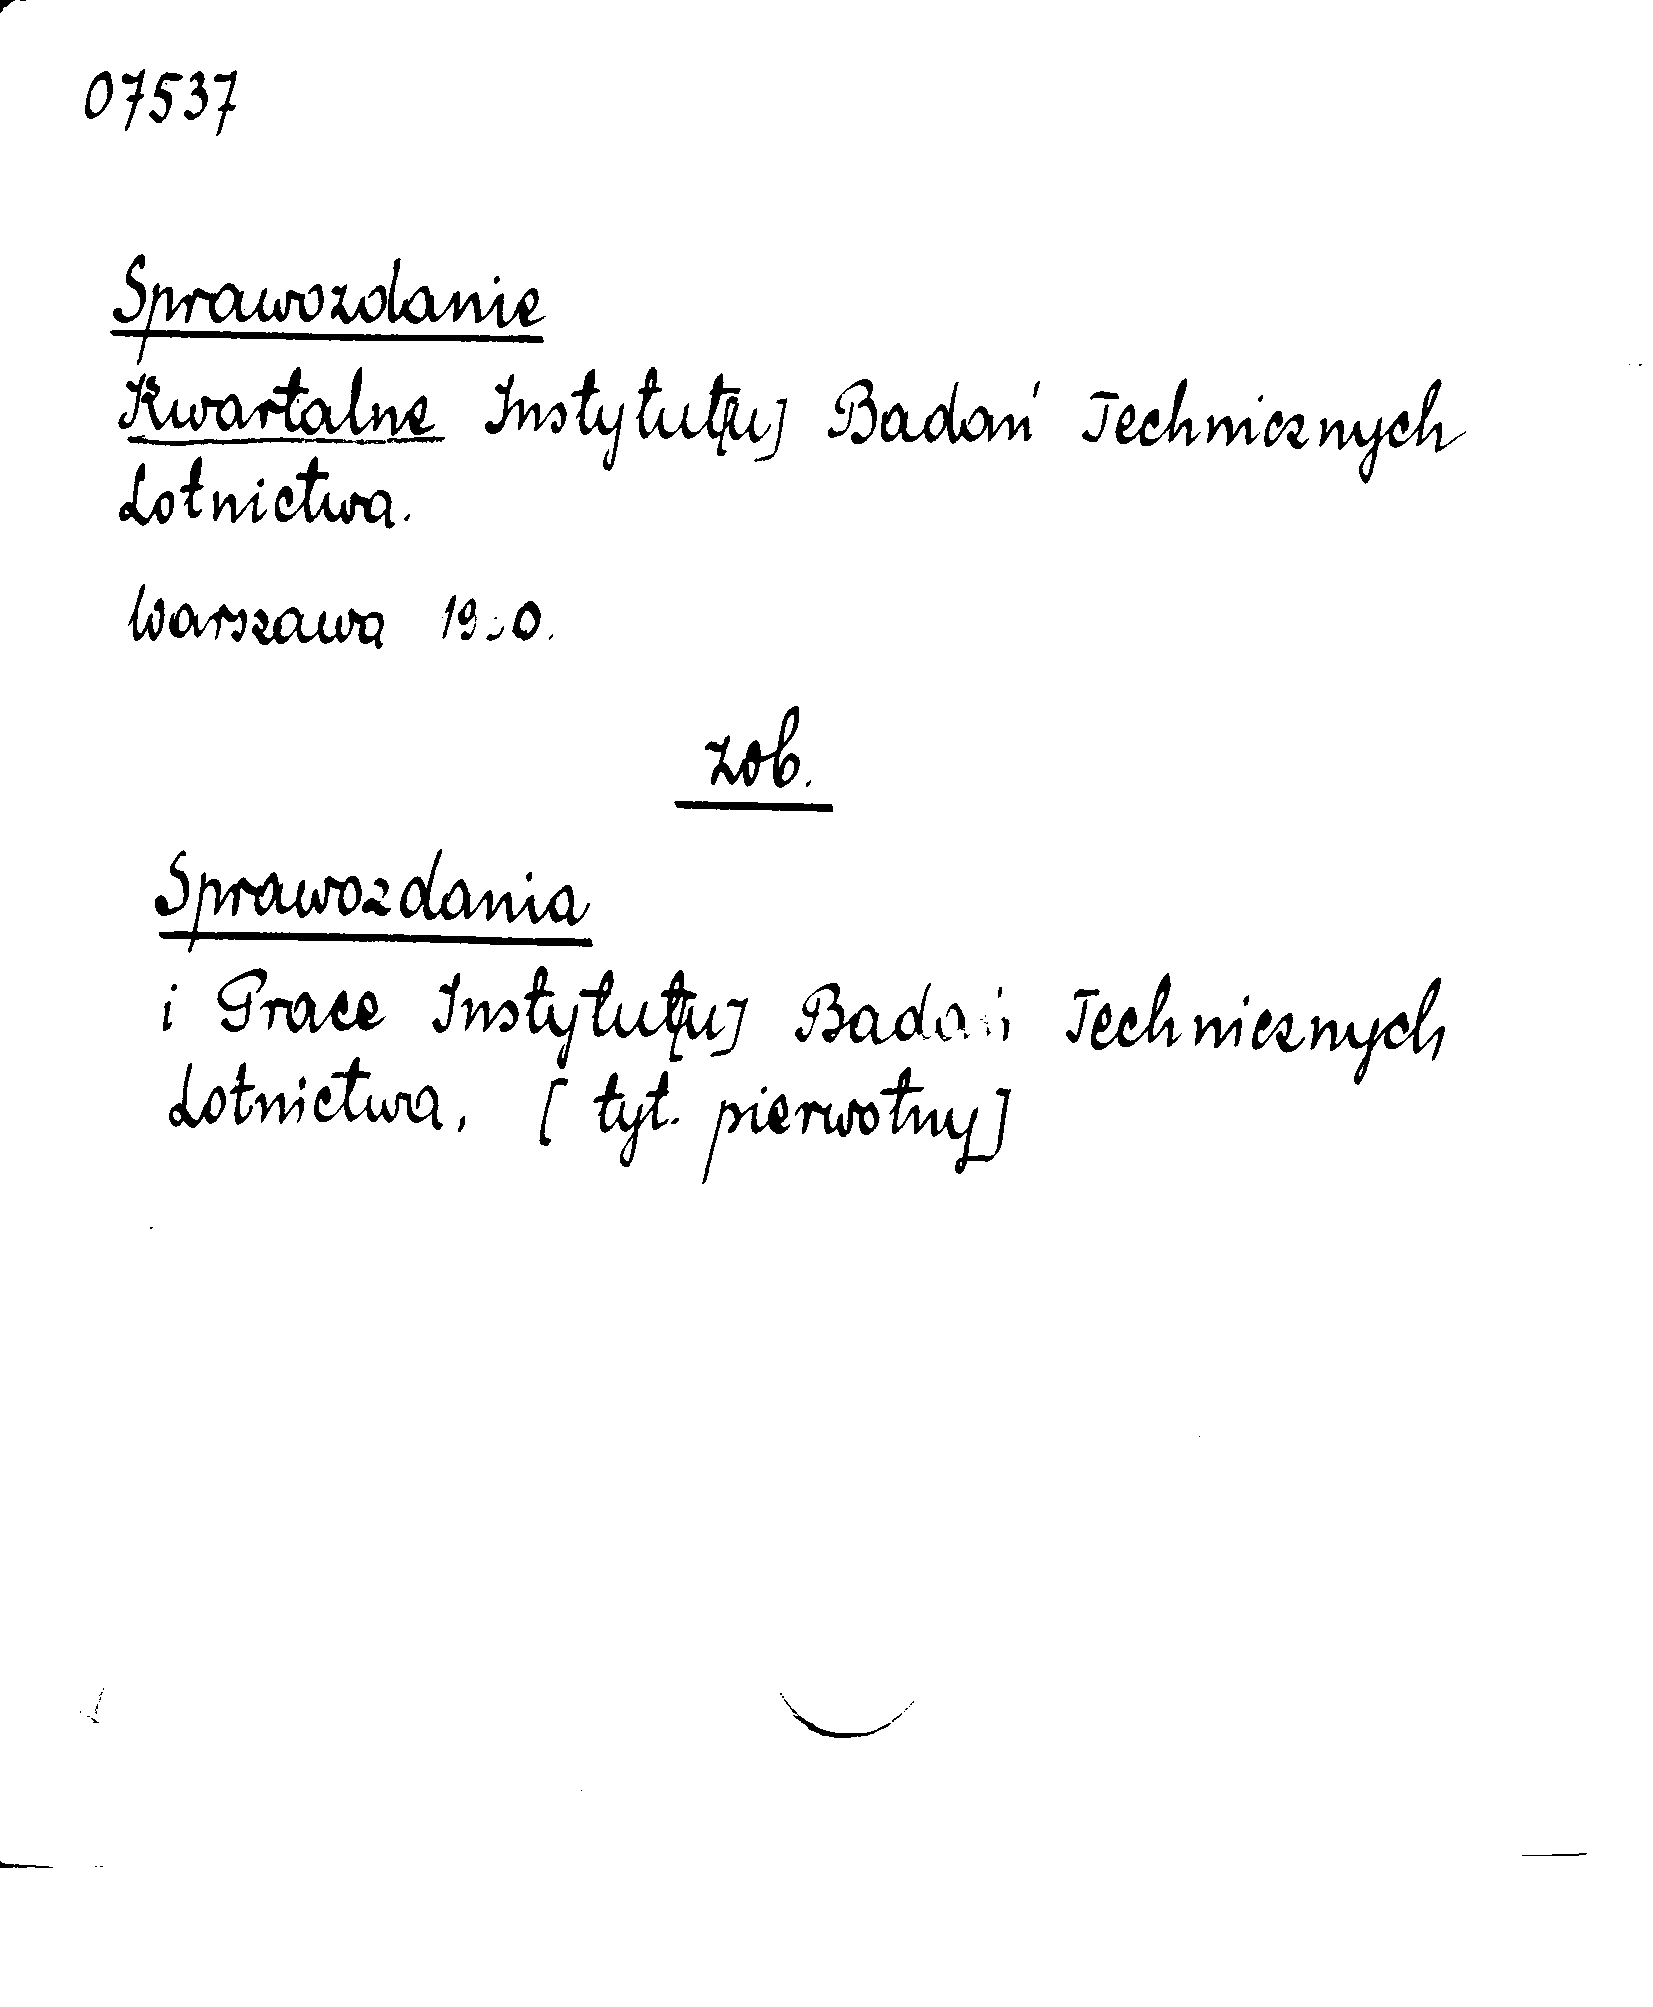 07537
Sprawozdanie
Kwartalne Instytut[u] Badań Technicznych
Lotnictwa.
Warszawa
zob.
Sprawozdania
i Prace Instytut[u] Badań Technicznych
Lotnictwa, [tyt. pierwotny]